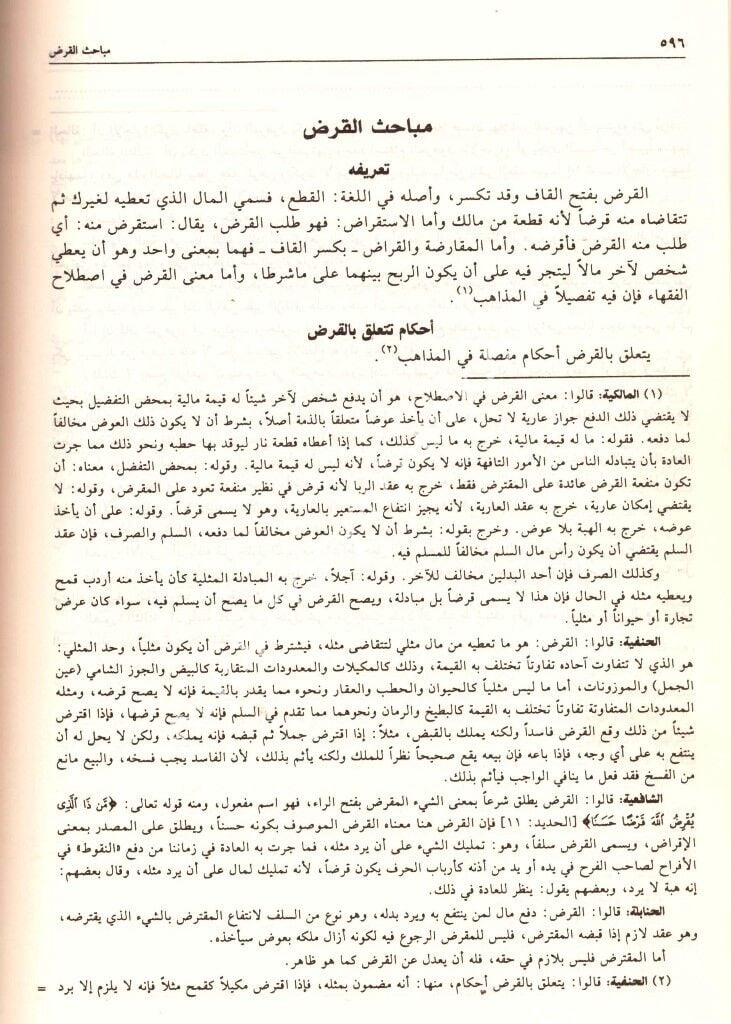 ٥٩٦
مباحث القرض
مباحث القرض
تعريفه
القرض بفتح القاف وقد تكسر، وأصله في اللغة: القطع، فسمي المال الذي تعطيه لغيرك ثم
تتقاضاه منه قرضاً لأنه قطعة من مالك وأما الاستقراض: فهو طلب القرض، يقال: استقرض منه: أي
طلب منه القرض فأقرضه. وأما المقارضة والقراض ـ بكسر القاف ـ فهما بمعنى واحد وهو أن يعطي
شخص لآخر مالاً ليتجر فيه على أن يكون الربح بينهما على ماشرطا، وأما معنى القرض في اصطلاح
الفقهاء فإن فيه تفصيلاً في المذاهب(١).
أحكام تتعلق بالقرض
يتعلق بالقرض أحكام مفصلة في المذاهب(٢).
(١) المالكية: قالوا: معنى القرض في الاصطلاح، هو أن يدفع شخص لآخر شيئاً له قيمة مالية بمحض التفضيل بحيث
لا يقتضي ذلك الدفع جواز عارية لا تحل، على أن يأخذ عوضاً متعلقاً بالذمة أصلاً، بشرط أن لا يكون ذلك العوض مخالفاً
لما دفعه. فقوله: ما له قيمة مالية، خرج به ما ليس كذلك، كما إذا أعطاه قطعة نار ليوقد بها حطبه ونحو ذلك مما جرت
العادة بأن يتبادله الناس من الأمور التافهة فإنه لا يكون قرضاً، لأنه ليس له قيمة مالية. وقوله: بمحض التفضل، معناه: أن
تكون منفعة القرض عائدة على المقترض فقط، خرج به عقد الربا لأنه قرض في نظير منفعة تعود على المقرض، وقوله: لا
يقتضي إمكان عارية، خرج به عقد العارية، لأنه يجيز انتفاع المستعير بالعارية، وهو لا يسمى قرضاً. وقوله: على أن يأخذ
عوضه، خرج به الهبة بلا عوض. وخرج بقوله: بشرط أن لا يكون العوض مخالفاً لما دفعه، السلم والصرف، فإن عقد
السلم يقتضي أن يكون رأس مال السلم مخالفاً للمسلم فيه.
وكذلك الصرف فإن أحد البدلين مخالف للآخر. وقوله: آجلاً، خرج به المبادلة المثلية كأن يأخذ منه أردب قمح
ويعطيه مثله في الحال فإن هذا لا يسمى قرضاً بل مبادلة، ويصح القرض في كل ما يصح أن يسلم فيه، سواء كان عرض
تجارة أو حيواناً أو مثلياً.
الحنفية: قالوا: القرض: هو ما تعطيه من مال مثلي لتتقاضى مثله، فيشترط في القرض أن يكون مثلياً، وحد المثلي:
هو الذي لا تتفاوت آحاده تفاوتاً تختلف به القيمة، وذلك كالمكيلات والمعدودات المتقاربة كالبيض والجوز الشامي (عين
الجمل) والموزونات، أما ما ليس مثلياً كالحيوان والحطب والعقار ونحوه مما يقدر بالقيمة فإنه لا يصح قرضه، ومثله
المعدودات المتفاوتة تفاوتاً تختلف به القيمة كالبطيخ والرمان ونحوهما مما تقدم في السلم فإنه لا يصح قرضها، فإذا اقترض
شيئاً من ذلك وقع القرض فاسداً ولكنه يملك بالقبض، مثلاً: إذا اقترض جملاً ثم قبضه فإنه يملكه، ولكن لا يحل له أن
ينتفع به على أي وجه، فإذا باعه فإن بيعه يقع صحيحاً نظراً للملك ولكنه يأثم بذلك، لأن الفاسد يجب فسخه، والبيع مانع
من الفسخ فقد فعل ما ينافي الواجب فيأثم بذلك.
الشافعية: قالوا: القرض يطلق شرعاً بمعنى الشيء المقرض بفتح الراء، فهو اسم مفعول، ومنه قوله تعالى: ﴿مَّن ذَا الَّذِى
يُقْرِضُ اللَّهَ قَرْضًا حَسَنًا﴾ [الحديد: ١١] فإن القرض هنا معناه القرض الموصوف بكونه حسناً، ويطلق على المصدر بمعنى
الإقراض، ويسمى القرض سلفاً، وهو: تمليك الشيء على أن يرد مثله، فما جرت به العادة في زماننا من دفع «النقوط» في
الأفراح لصاحب الفرح في يده أو يد من أذنه كأرباب الحرف يكون قرضاً، لأنه تمليك لمال على أن يرد مثله، وقال بعضهم:
إنه هبة لا يرد، وبعضهم يقول: ينظر للعادة في ذلك.
الحنابلة: قالوا: القرض: دفع مال لمن ينتفع به ويرد بدله، وهو نوع من السلف لانتفاع المقترض بالشيء الذي يقترضه،
وهو عقد لازم إذا قبضه المقترض، فليس للمقرض الرجوع فيه لكونه أزال ملكه بعوض سيأخذه.
أما المقترض فليس بلازم في حقه، فله أن يعدل عن القرض كما هو ظاهر.
(٢) الحنفية: قالوا: يتعلق بالقرض أحكام، منها: أنه مضمون بمثله، فإذا اقترض مكيلاً كقمح مثلاً فإنه لا يلزم إلا برد =